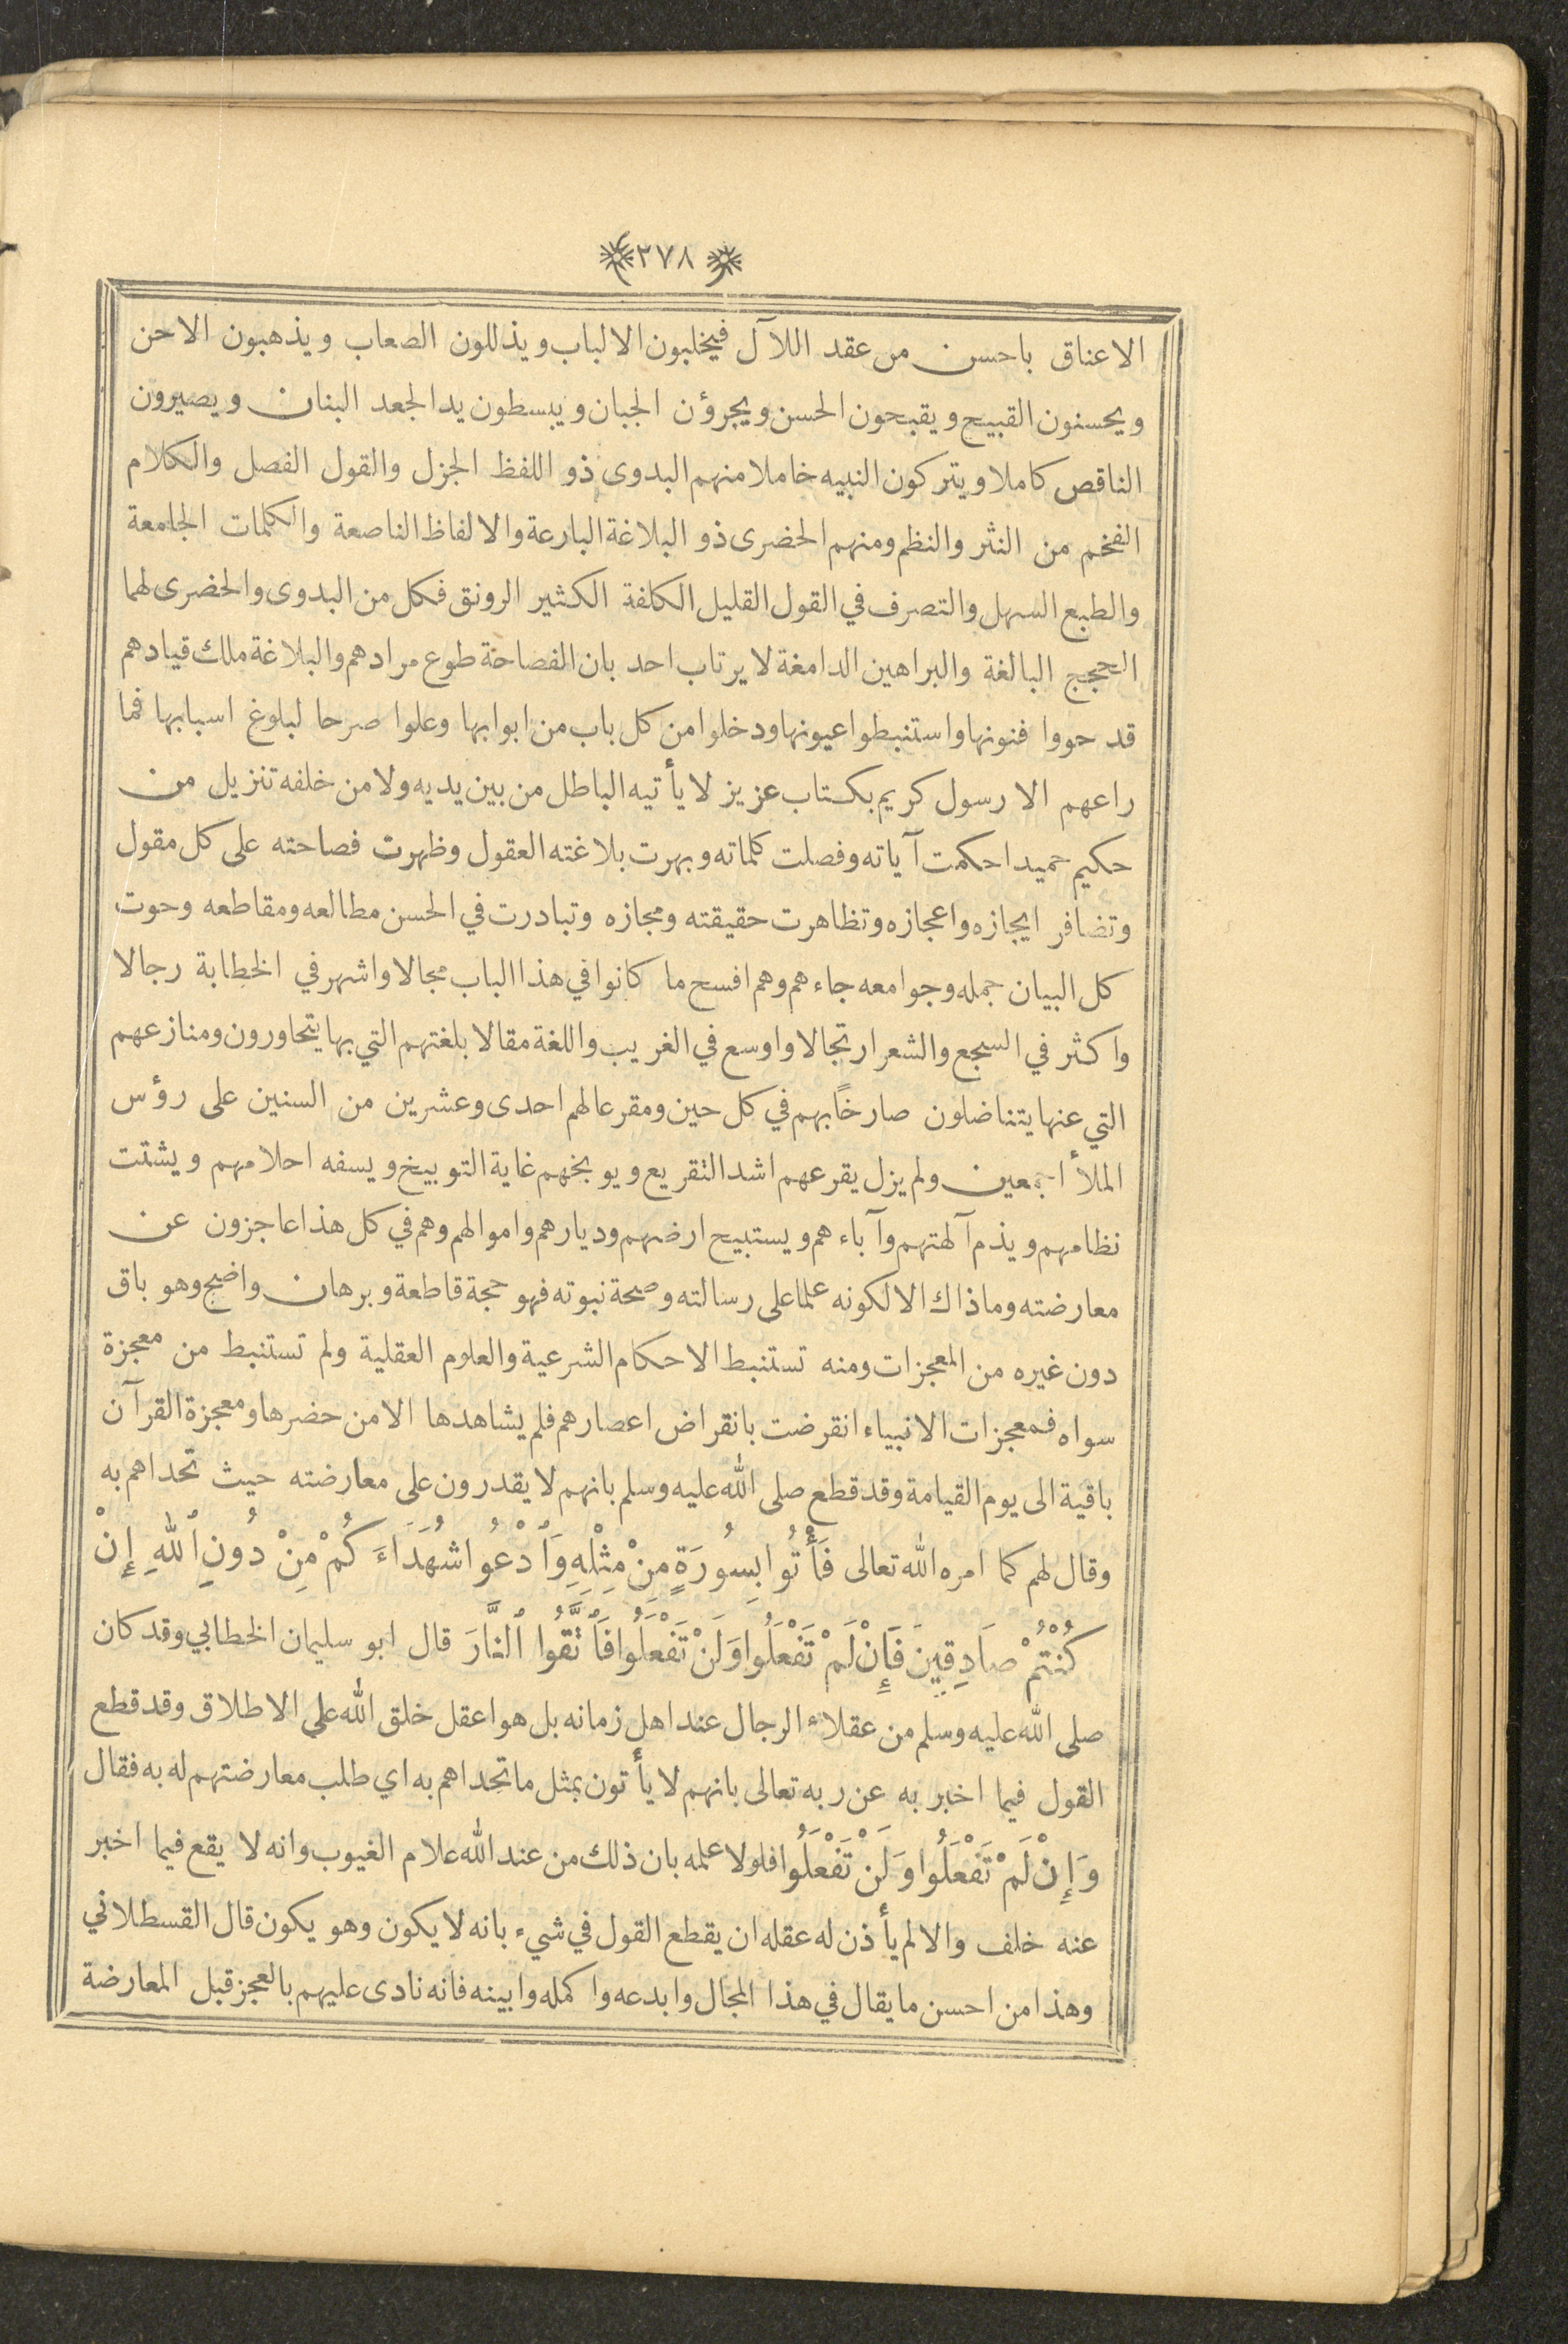 ٣٧٨
الاعناق باحسن من عقد اللآل فيخلبون الالباب ويذللون الصعاب ويذهبون الاحن
ويحسنون القبيح ويقبحون الحسن ويجرؤن الجبان ويبسطون يد الجعد البنان ويصيرون
الناقص كاملا ويتركون النبيه خاملا منهم البدوى ذو اللفظ الجزل والقول الفصل والكلام
الفخم من النثر والنظم ومنهم الحضرى ذو البلاغة البارعة والالفاظ الناصعة والكلمات الجامعة
والطبع السهل والتصرف في القول القليل الكلفة الكثير الرونق فكل من البدوى والحضرى لهما
الحجج البالغة والبراهين الدامغة لا يرتاب احد بان الفصاحة طوع مرادهم والبلاغة ملك قيادهم
قد حووا فنونها واستنبطوا عيونها ودخلوا من كل باب من ابوابها وعلوا صرحا لبلوغ اسبابها فما
راعهم الا رسول كريم بكتاب عزيز لا يأتيه الباطل من بين يديه ولا من خلفه تنزيل من
حكيم حميد احكمت آياته وفصلت كلماته وبهرت بلاغته العقول وظهرت فصاحته على كل مقول
وتضافر ايجازه واعجازه وتظاهرت حقيقته ومجازه وتبادرت في الحسن مطالعه ومقاطعه وحوت
كل البيان جمله وجوامعه جاءهم وهم افسح ما كانوا في هذا الباب مجالا واشهر في الخطابة رجالا
واكثر في السجع والشعر ارتجالا واوسع في الغريب واللغة مقالا بلغتهم التي بها يتحاورون ومنازعهم
التي عنها يتناضلون صارخاً بهم في كل حين ومقرعا لهم احدى وعشرين من السنين على رؤس
الملأ اجمعين ولم يزل يقرعهم اشد التقريع ويوبخهم غاية التوبيخ ويسفه احلامهم ويشتت
نظامهم ويذم آلهتهم وآباءهم ويستبيح ارضهم وديارهم واموالهم وهم في كل هذا عاجزون عن
معارضته وما ذاك الا لكونه علما على رسالته وصحة نبوته فهو حجة قاطعة وبرهان واضح وهو باق
دون غيره من المعجزات ومنه تستنبط الاحكام الشرعية والعلوم العقلية ولم تستنبط من معجزة
سواه فمعجزات الانبياء انقرضت بانقراض اعصارهم فلم يشاهدها الا من حضرها ومعجزة القرآن
باقية الى يوم القيامة وقد قطع صلى الله عليه وسلم بانهم لا يقدرون على معارضته حيث تحداهم به
وقال لهم كما امره الله تعالى فَأْتُوا بِسُورَةٍ مِنْ مِثْلِهِ وَٱدْعُوا شُهَدَاءَكُمْ مِنْ دُونِ ٱللهِ إِنْ
كُنْتُمْ صَادِقِينَ فَإِنْ لَمْ تَفْعَلُوا وَلَنْ تَفْعَلُوا فَٱتَّقُوا ٱلنَّارَ قال ابو سليمان الخطابي وقد كان
صلى الله عليه وسلم من عقلاء الرجال عند اهل زمانه بل هو اعقل خلق الله على الاطلاق وقد قطع
القول فيما اخبر به عن ربه تعالى بانهم لا يأتون بمثل ما تحداهم به اي طلب معارضتهم له به فقال
وَإِنْ لَمْ تَفْعَلُوا وَلَنْ تَفْعَلُوا فلولا علمه بان ذلك من عند الله علام الغيوب وانه لا يقع فيما اخبر
عنه خلف والا لم يأذن له عقله ان يقطع القول في شيء بانه لا يكون وهو يكون قال القسطلاني
وهذا من احسن ما يقال في هذا المجال وابدعه واكمله وابينه فانه نادى عليهم بالعجز قبل المعارضة